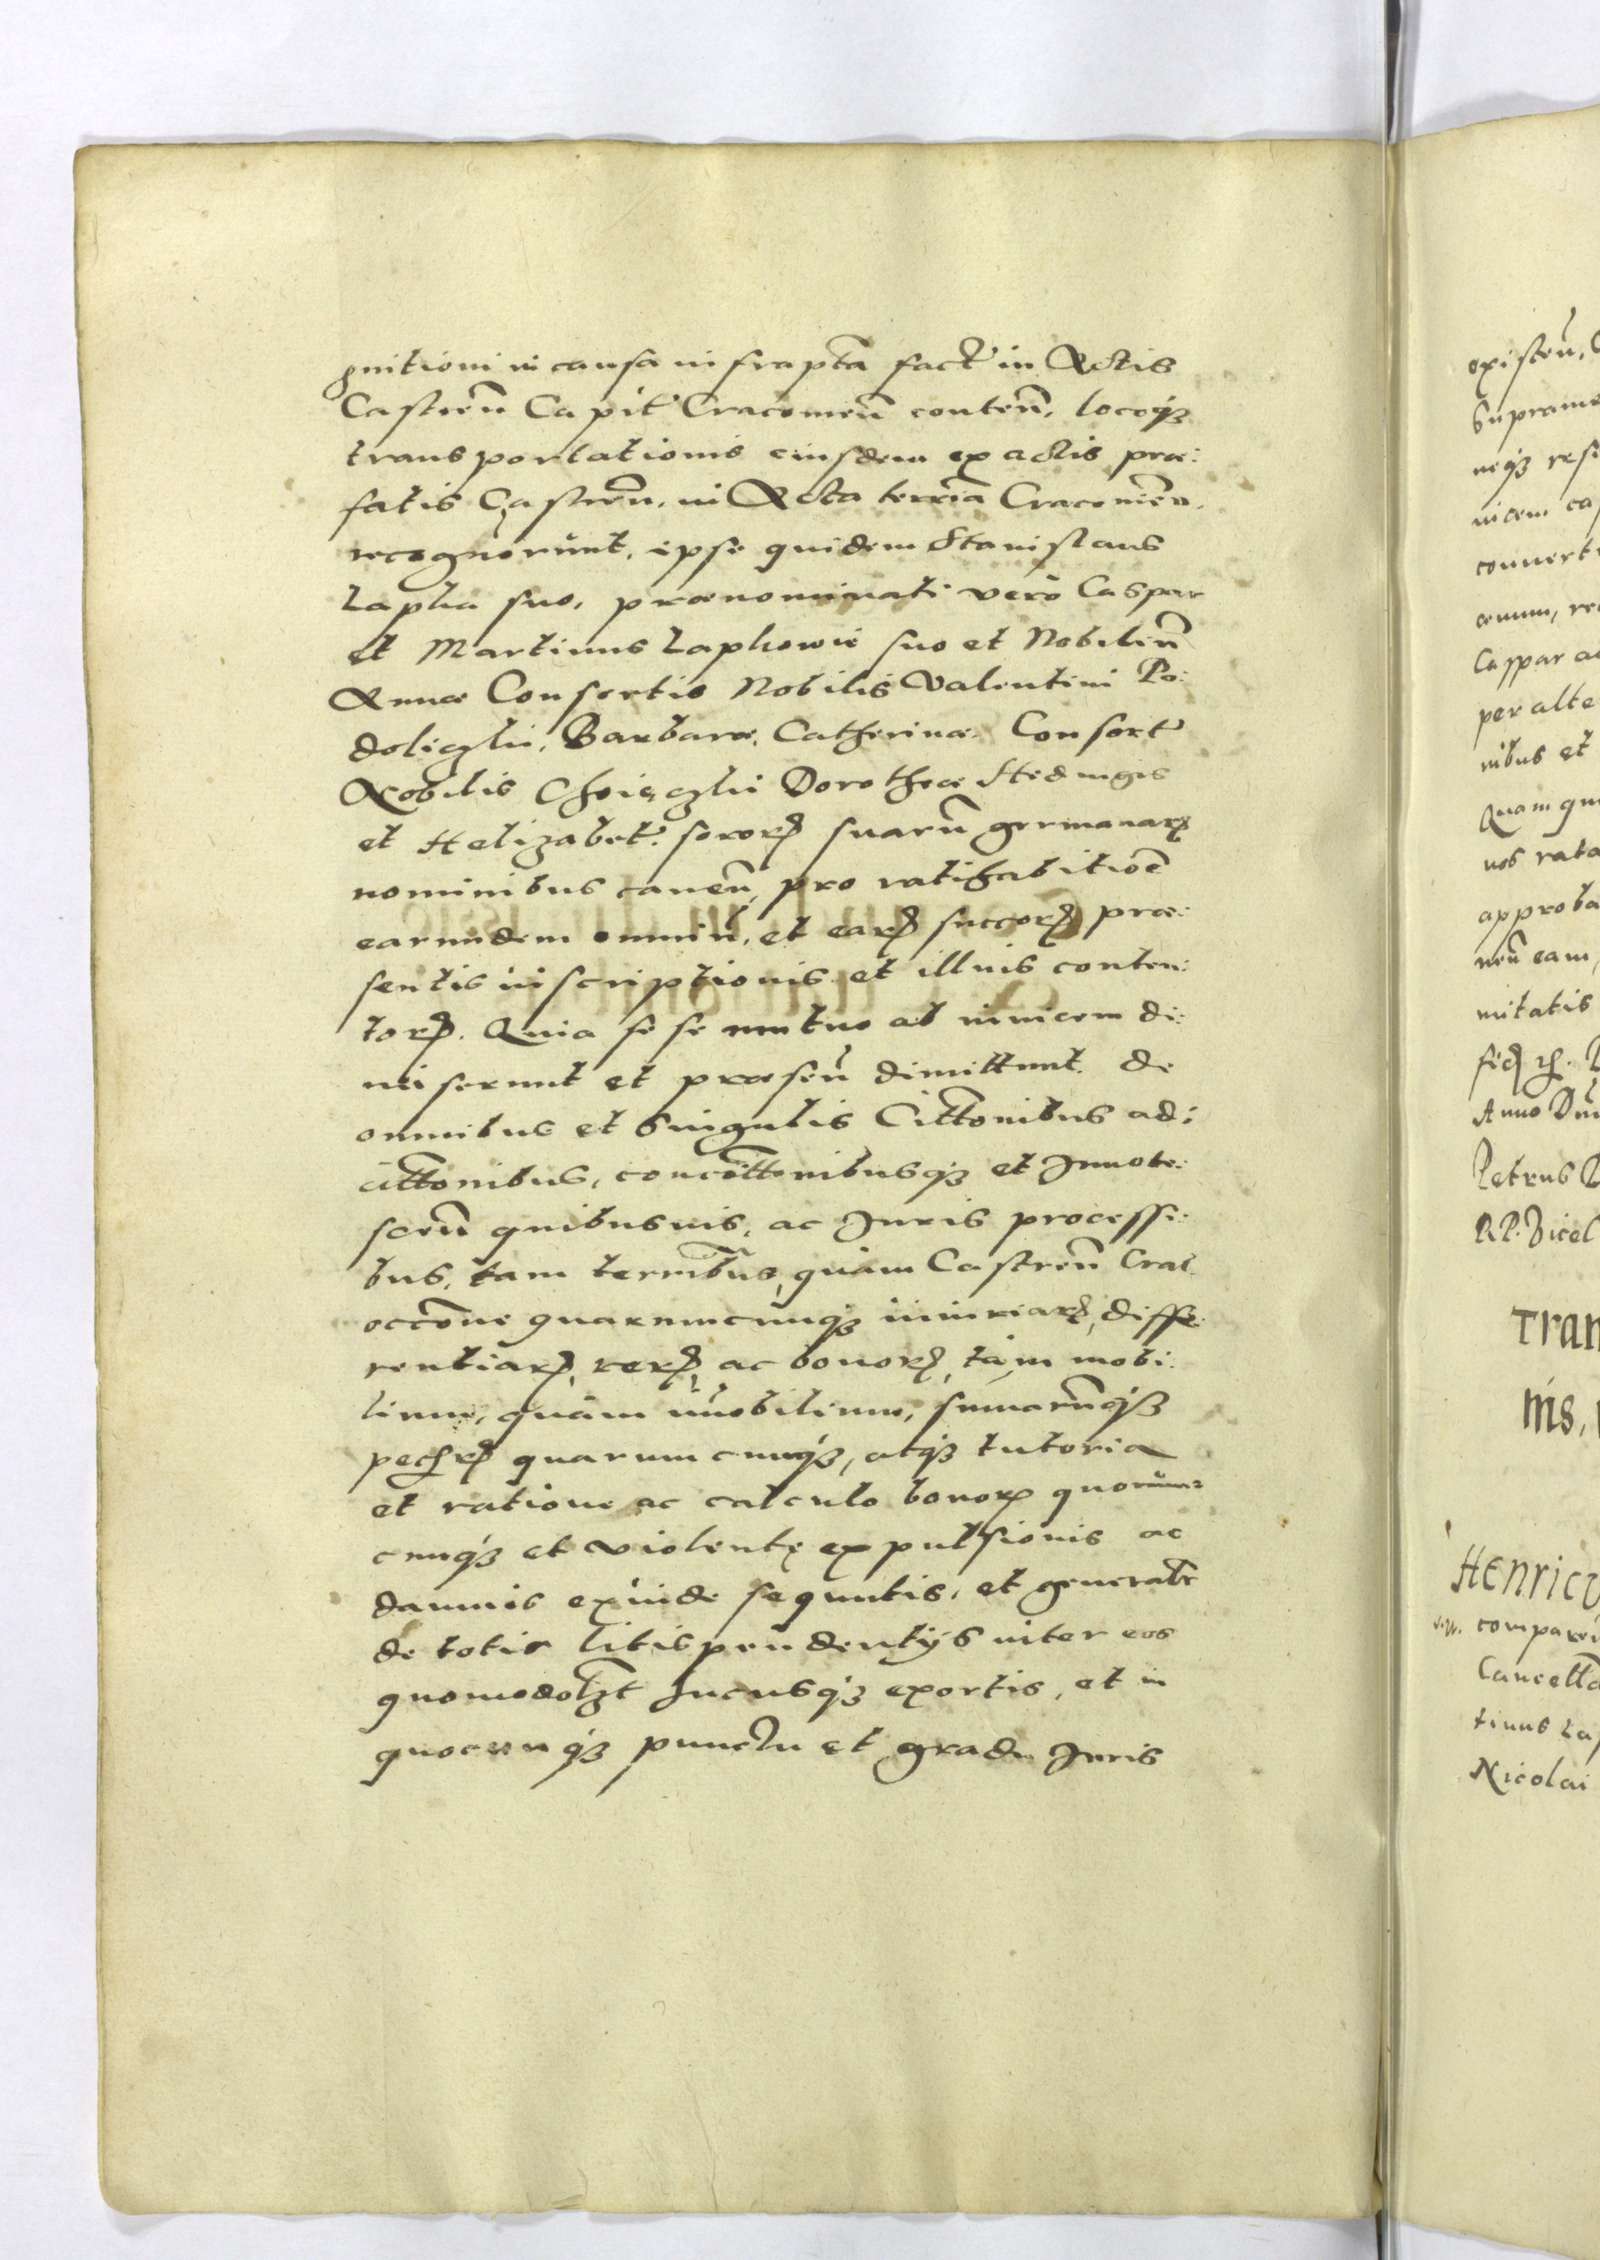 gnitioni in causa infrapta fact in Actis
Castren Capit Cracomien conten, locoq3
transportationis eiusdem ex actis præ:
fatis Castren, in Acta terria Cracomien.
recognorunt, ipse quidem Stanislaus
Lapka suo, prænominati verò Caspar
et Martinus Lapkowie suo et Nobilium
Annæ Consortis Nobilis Valentini Po:
doliczki, Barbaræ, Catherinæ Consort
Nobilis Dorotheæ Hedwigis
et Helizabet soror suaru germanar
nominibus caven, pro ratihabitioe
earundem omniu, et ear succor præ:
sentis inscriptionis et illuis conten:
tor. Quia se se mutuo ab invicem di:
miserunt et præsen dimittunt de
omnibus et singulis Cittonibus adi:
cittonibus, concittonibusq3 et Innote:
scen quibusuis, ac Iuris processi:
bus, tam terribus, quàm Castren Crac
occone quarumcunq3 iniuriar, diffe:
rentiar, rer, ac bonor, tàm mobi:
lium, quàm imobilium, sumarumq3
pecr quarumcunq3, atq3 tutoria
et ratione ac calculo bonor quorum=
cunq3 et violentę expulsionis ac
damnis exinde sequutis, et generalr
de totis litispendentijs inter eos
quomodolzt hucusq3 exortis, et in
quocunq3 punctu et gradu Iuris
existen,
Suprame
neq3 resi
nicem ca
convert
Caspar ac
per alte
nibus et
Quam qui
nos rata
approba
nen eam,
mitatis
Anno Dni
Petrus
R.P. Vicel
Tran
nis,
Henricu
comparen
Cancella
tinus La
Nicolai